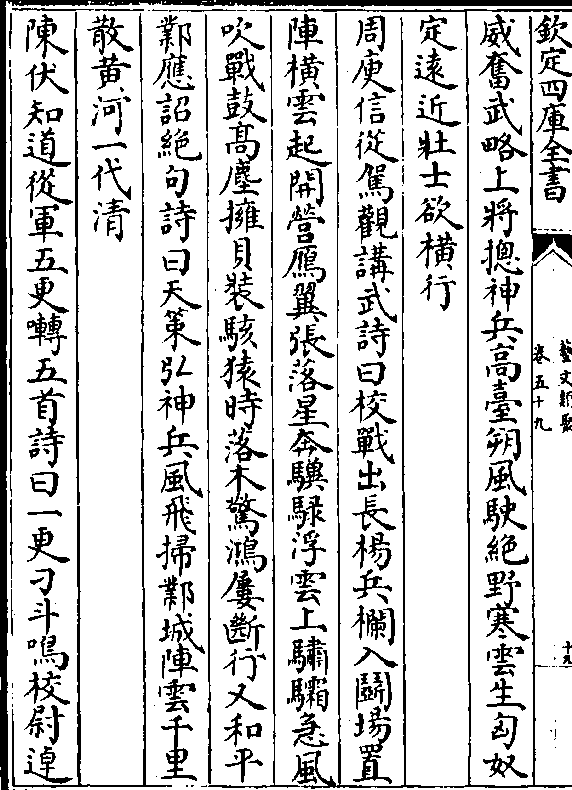 欽定四庫全書
藝文類聚
卷五十九
十九
威奮武略上將摠神兵高臺朔風駛絶野寒雲生匈奴
定逺近壯士欲橫行
周庾信從駕觀講武詩曰校戰出長楊兵欄入鬭場置
陣橫雲起開營鴈翼張落星奔驥騄浮雲上驌驦急風
吹戰鼓高塵擁貝裝駭猿時落木驚鴻屢斷行又和平
鄴應詔絶句詩曰天策引神兵風飛掃鄴城陣雲千里
散黄河一代清
陳伏知道從軍五更囀五首詩曰一更刁斗鳴校尉逴